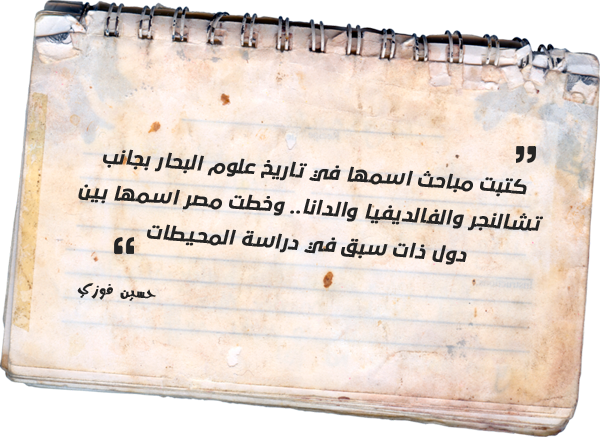 ❞
كتبت مباحث اسمها في تاريخ علوم البحار بجانب
تشالنجر والفالديفيا والدانا.. وخطت مصر اسمها بين
دول ذات سبق في دراسة المحيطات
❝
حسين فوزي